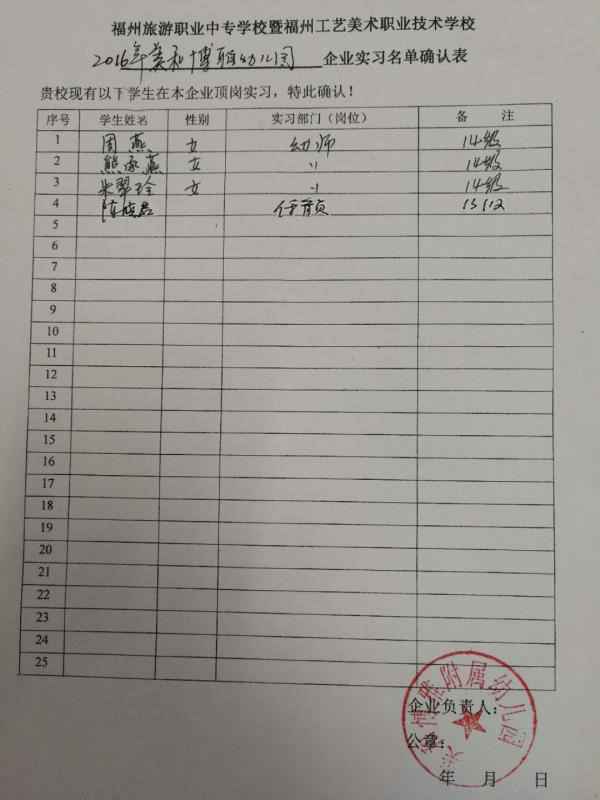 福州旅游职业中专学校暨福州工艺美术职业技术学校
2016年美和博雅幼儿园 企业实习名单确认表
贵校现有以下学生在本企业顶岗实习，特此确认！
序号 学生姓名 性别 实习部门（岗位） 备 注
1 周燕 女 幼师 14级
2 熊 燕 女 〃 14级
3 朱翠玲 女 〃 14级
4 陈
5
6
7
8
9
10
11
12
13
14
15
16
17
18
19
20
21
22
23
24
25
博雅附属幼儿园
企业负责人：
公章：
年 月 日